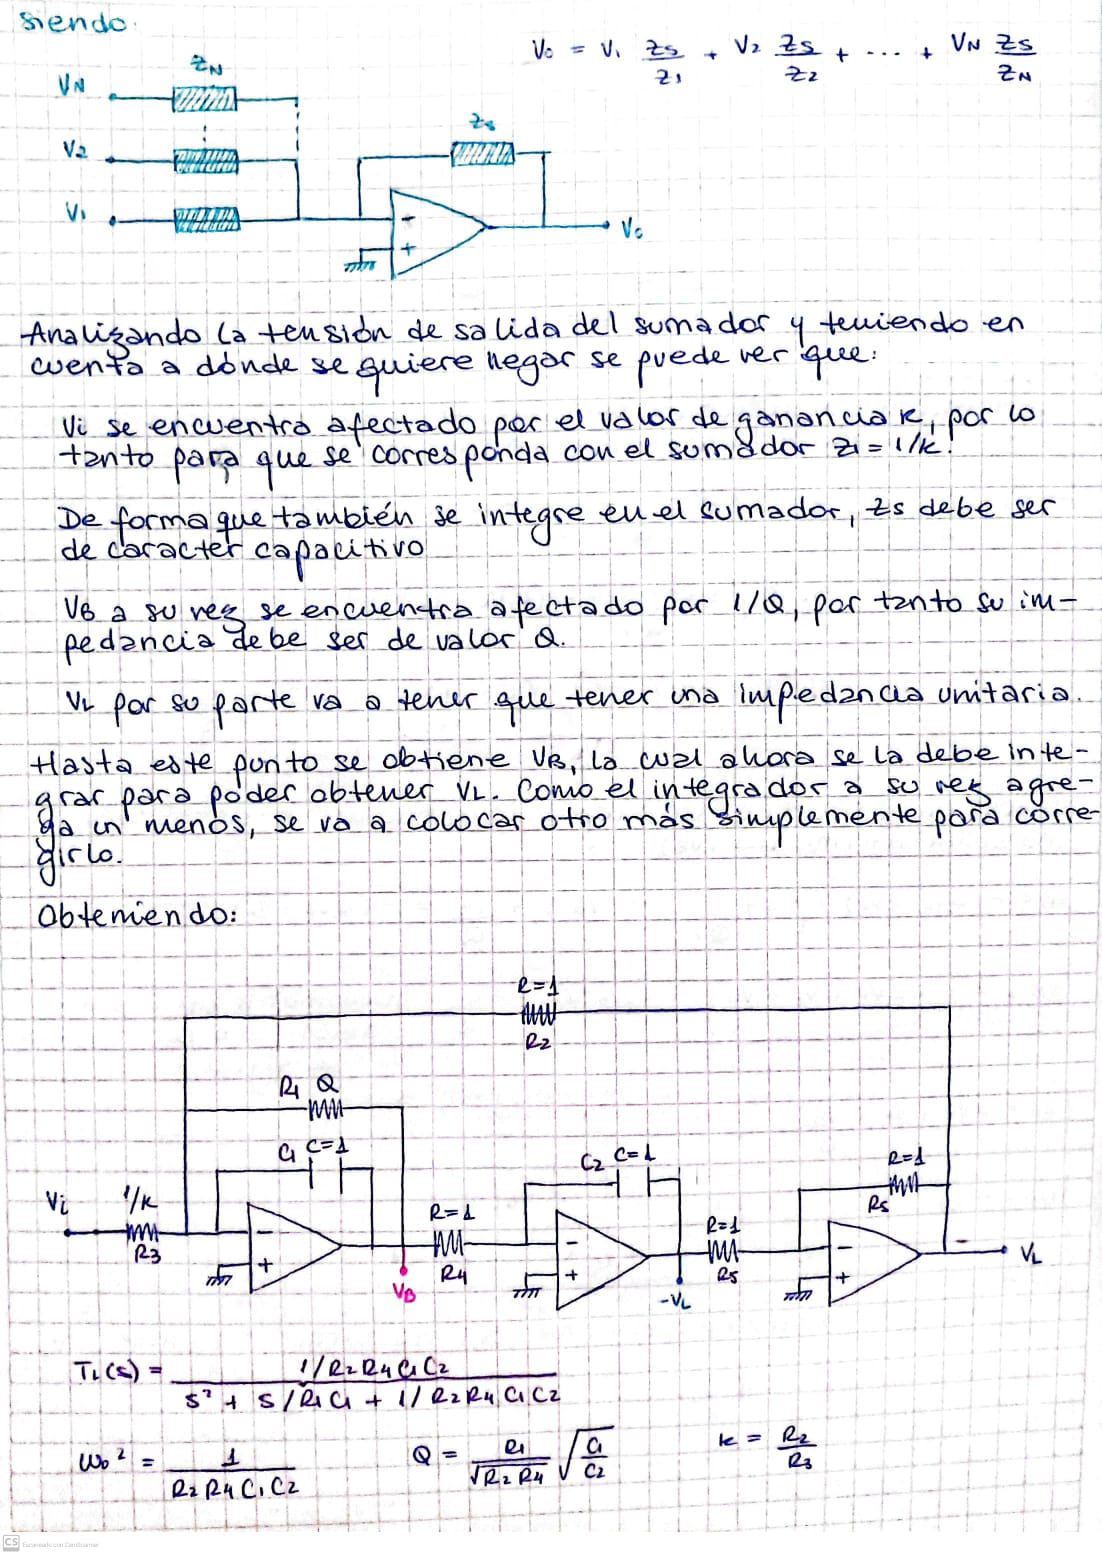 siendo:
Vo = V1 Zs/Z1 + V2 Zs/Z2 + ... + VN Zs/ZN
ZN
VN
V2
Zs
V1
-
+
Vo
Analizando la tensión de salida del sumador y teniendo en
cuenta a dónde se quiere llegar se puede ver que:
Vi se encuentra afectado por el valor de ganancia k, por lo
tanto para que se corresponda con el sumador Z1 = 1/k.
De forma que también se integre en el sumador, Zs debe ser
de caracter capacitivo
VB a su vez se encuentra afectado por 1/Q, por tanto su im-
pedancia debe ser de valor Q.
VL por su parte va a tener que tener una impedancia unitaria.
Hasta este punto se obtiene VB, la cual ahora se la debe inte-
grar para poder obtener VL. Como el integrador a su vez agre-
ga un menos, se va a colocar otro más simplemente para corre-
girlo.
Obteniendo:
R=1
R2
R1 Q
C1 C=1
C2 C=1
R=1
R5
Vi
1/k
R3
-
+
R=1
R4
VB
-
+
R=1
R5
-VL
-
+
VL
TL(s) = 1/R2R4C1C2 / s² + s/R1C1 + 1/R2R4C1C2
Wo² = 1/R2R4C1C2
Q = R1/√R2R4 √C1/C2
k = R2/R3
CS Escaneado con CamScanner